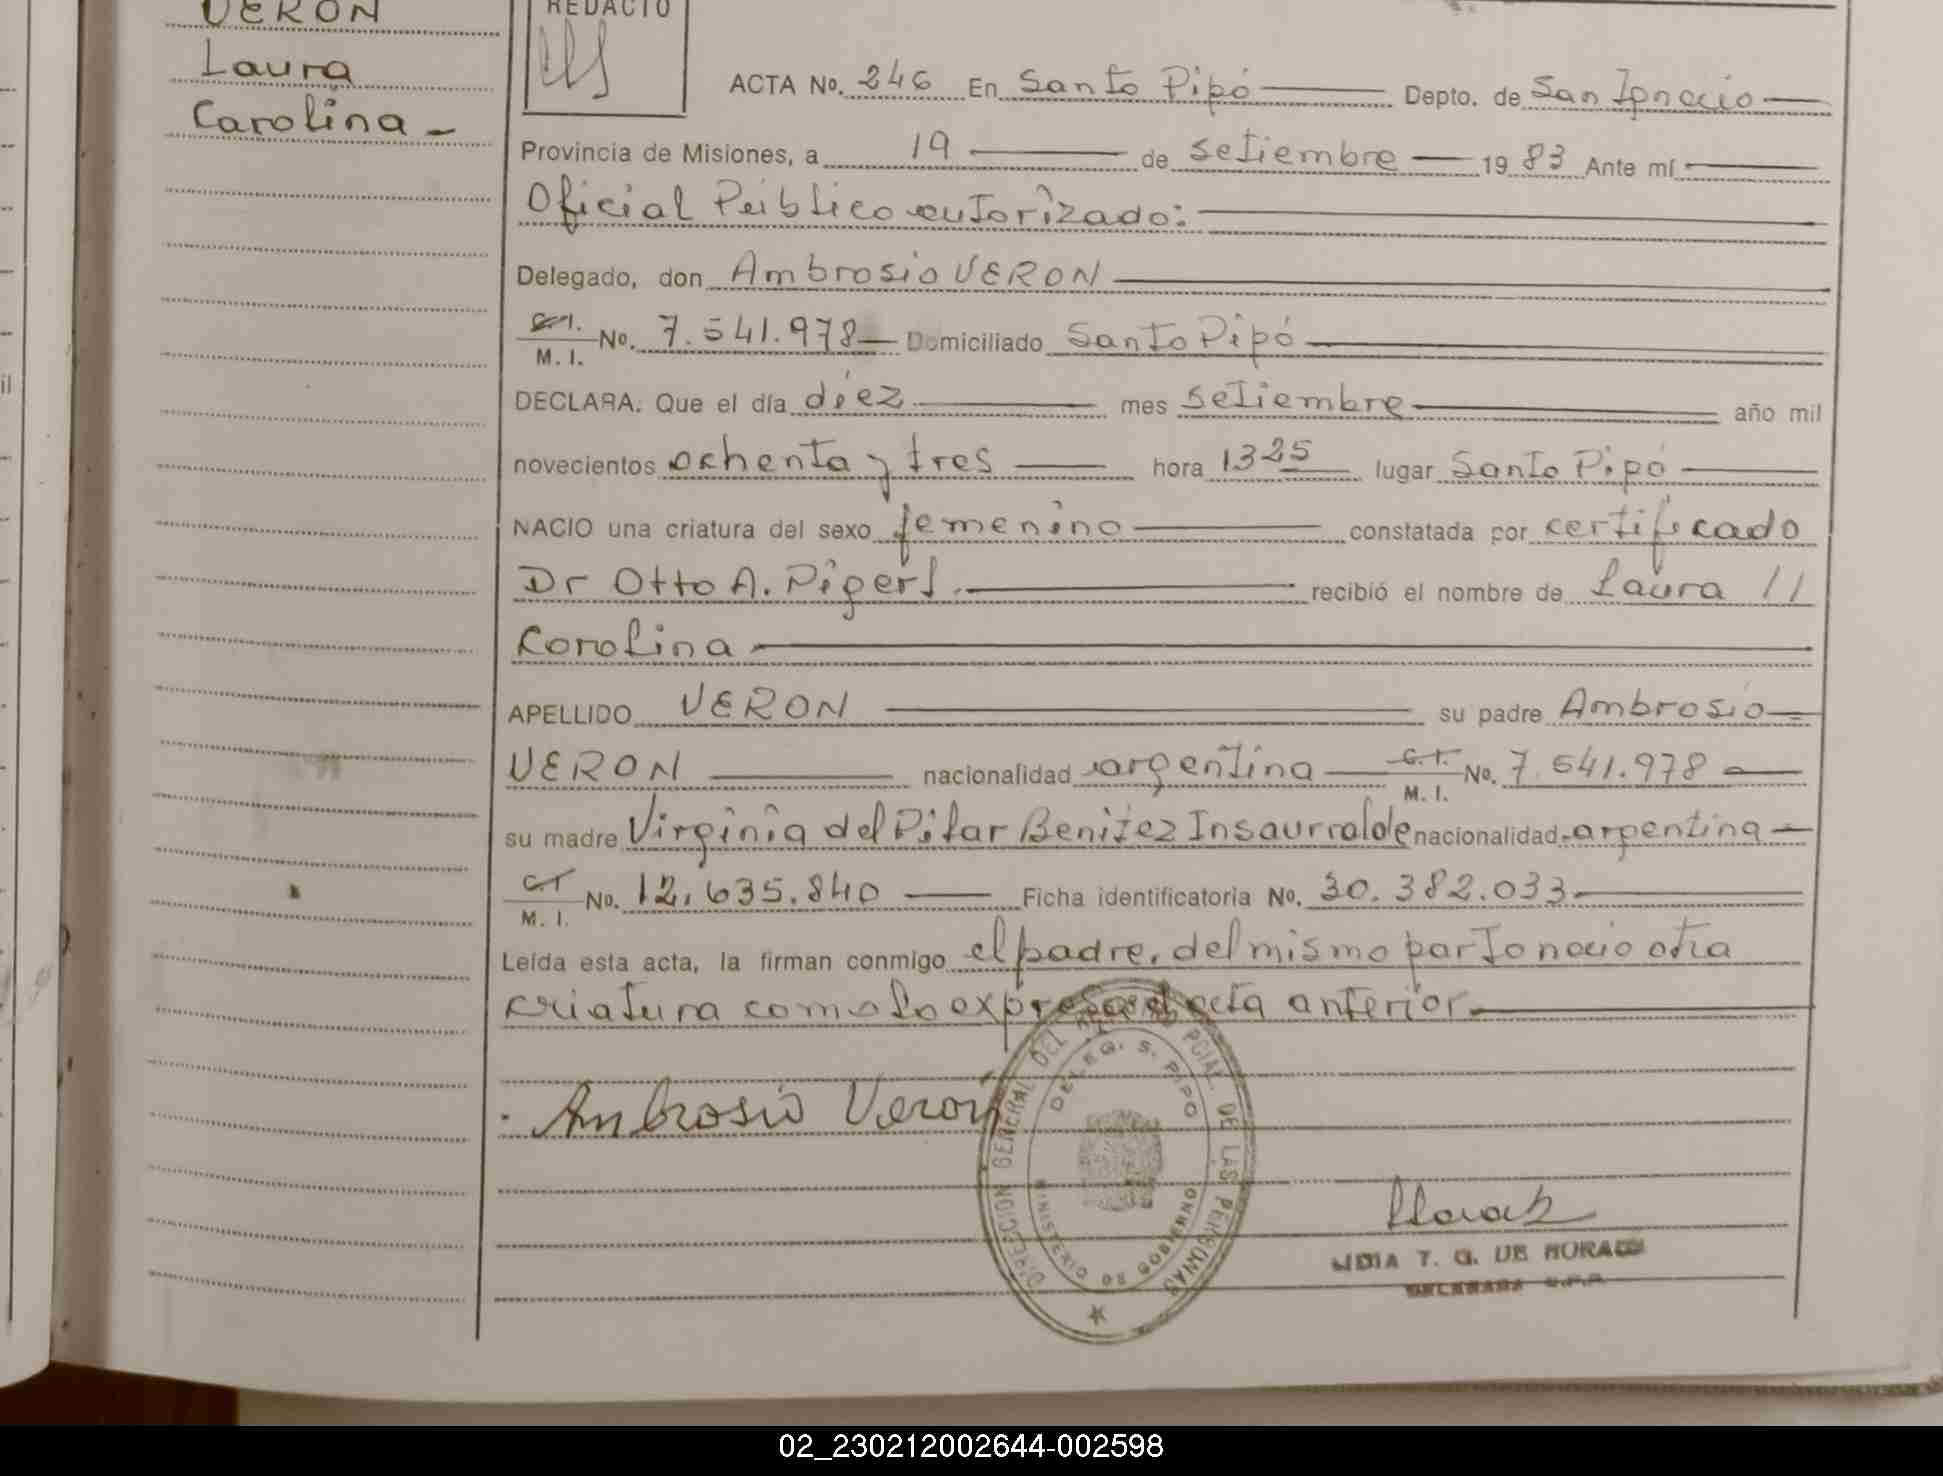 VERON
Laura
Carolina -
REDACTO
ACTA No. 246 En Santo Pipó Depto. de San Ignacio
Provincia de Misiones, a 19 de setiembre 19 83 Ante mí
Oficial Público autorizado:
Delegado, don Ambrosio VERON
C.I. M. I. No. 7.541.978 Domiciliado Santo Pipó
DECLARA: Que el día diez mes setiembre año mil
novecientos ochenta y tres hora 1325 lugar Santo Pipó
NACIO una criatura del sexo femenino constatada por certificado
Dr Otto A. recibió el nombre de Laura //
Carolina
APELLIDO VERON su padre Ambrosio
VERON nacionalidad argentina C.I. M. I. No. 7.541.978
su madre Virginia del Pilar Benitez Insaurralde nacionalidad argentina
C.I. M. I. No. 12.635.840 Ficha identificatoria No. 30.382.033
Leída esta acta, la firman conmigo el padre, del mismo parto nacio otra
criatura como lo expresa el acta anterior
Ambrosio Veron
DIRECCION GENERAL DEL PCIAL. DE LAS PERSONAS
DELEG. S. PIPO
MINISTERIO DE GOBIERNO
LIDIA T. G. DE
02_230212002644-002598